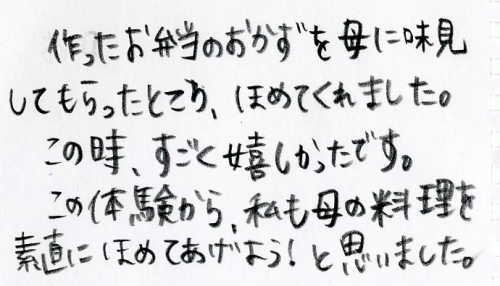 作ったお弁当のおかずを母に味見
してもらったところ、ほめてくれました。
この時、すごく嬉しかったです。
この体験から、私も母の料理を
素直にほめてあげよう！と思いました。